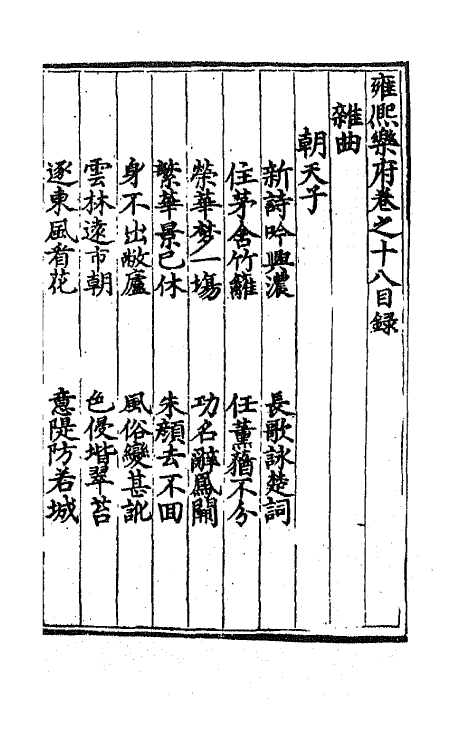 雍熙樂府卷之十八目録
雜曲
朝天子
新詩吟興濃　長歌詠楚詞
住茅舍竹籬　任薰蕕不分
榮華梦一塲　功名辭鳳闕
繁華景已休　朱顔去不回
身不出敝廬　風俗變甚訛
雲林遠市朝　色侵堦翠苔
逐東風看花　意隄防若城